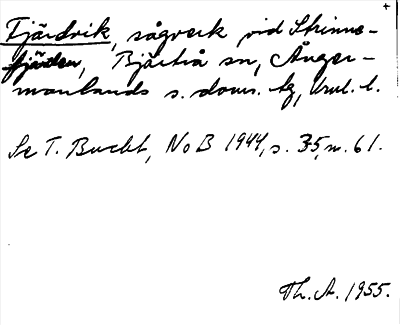 Fjärdvik, sågverk vid Strinne-
fjärden, Bjärtrå sn, Ånger-
manlands s. doms. tg, Vnl. l.
Se T. Bucht, NoB 1944, s. 35, n. 61.
Th. A. 1955.